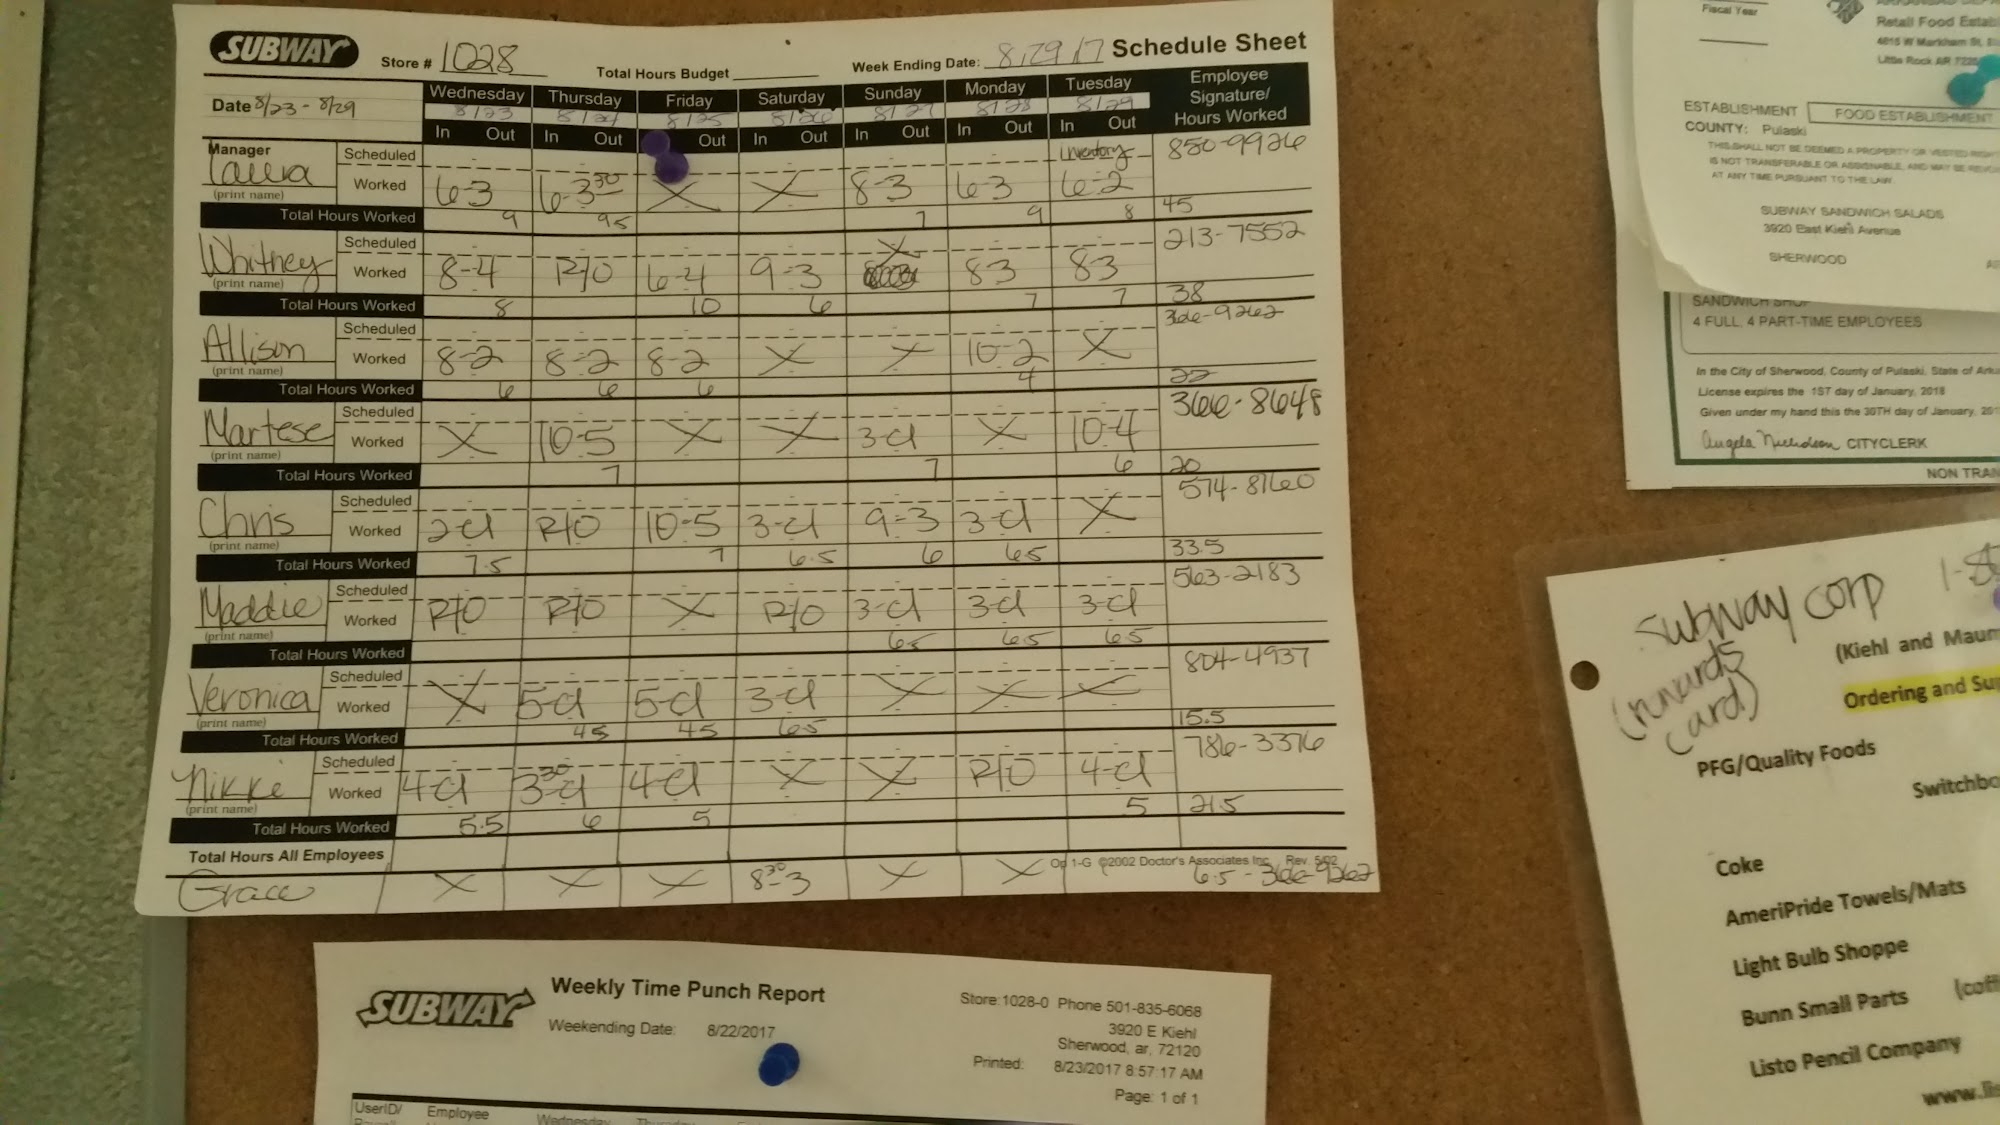 SUBWAY Store # 1028 Total Hours Budget Week Ending Date: 8/29/17 Schedule Sheet
Date 8/23 - 8/29 Wednesday Thursday Friday Saturday Sunday Monday Tuesday Employee Signature/ Hours Worked
8/23 8/24 8/25 8/26 8/27 8/28 8/29
In Out In Out Out In Out In Out In Out In Out
Manager Scheduled Inventory 850-9926
Laura Worked 6-3 6-3³⁰ X X 8-3 6-3 6-2
(print name)
Total Hours Worked 9 9.5 7 9 8 45
Scheduled X 213-7552
Whitney Worked 8-4 R/O 6-4 9-3 8-3 8-3
(print name)
Total Hours Worked 8 10 6 7 7 38
Scheduled 366-9262
Allison Worked 8-2 8-2 8-2 X X 10-2 X
(print name)
Total Hours Worked 6 6 6 4 22
Scheduled 366-8648
Martese Worked X 10-5 X X 3-cl X 10-4
(print name)
Total Hours Worked 7 7 6 20
Scheduled 574-8760
Chris Worked 2-cl R/O 10-5 3-cl 9-3 3-cl X
(print name)
Total Hours Worked 7.5 7 6.5 6 6.5 33.5
Scheduled 563-2183
Maddie Worked R/O R/O X R/O 3-cl 3-cl 3-cl
(print name) 6.5 6.5 6.5
Total Hours Worked
Scheduled 804-4937
Veronica Worked X 5-cl 5-cl 3-cl X X X
(print name)
Total Hours Worked 4.5 4.5 6.5 15.5
Scheduled 786-3376
Nikke Worked 4-cl 3³⁰-cl 4-cl X X R/O 4-cl
(print name)
Total Hours Worked 5.5 6 5 5 21.5
Total Hours All Employees
Op 1-G ©2002 Doctor's Associates Inc. Rev. 5/02
Grace X X X 8³⁰-3 X X 6.5 - 366-9262
SUBWAY Weekly Time Punch Report
Weekending Date: 8/22/2017
Store:1028-0 Phone 501-835-6068
3920 E Kiehl
Sherwood, ar, 72120
Printed: 8/23/2017 8:57:17 AM
Page: 1 of 1
UserID/ Employee Wednesday
Fiscal Year
Retail Food
4815 W Markham St
Little Rock AR
ESTABLISHMENT FOOD ESTABLISHMENT
COUNTY: Pulaski
THIS SHALL NOT BE DEEMED A PROPERTY OR VESTED
IS NOT TRANSFERABLE OR ASSIGNABLE, AND MAY BE
AT ANY TIME PURSUANT TO THE LAW.
SUBWAY SANDWICH SALADS
3920 East Kiehl Avenue
SHERWOOD
SANDWICH SHOP
4 FULL, 4 PART-TIME EMPLOYEES
In the City of Sherwood, County of Pulaski, State of
License expires the 1ST day of January, 2018
Given under my hand this the 30TH day of January,
Angela Nicholson CITY CLERK
NON
Subway Corp
(rewards card)
(Kiehl and
Ordering and
PFG/Quality Foods
Coke
AmeriPride Towels/Mats
Light Bulb Shoppe
Bunn Small Parts
Listo Pencil Company